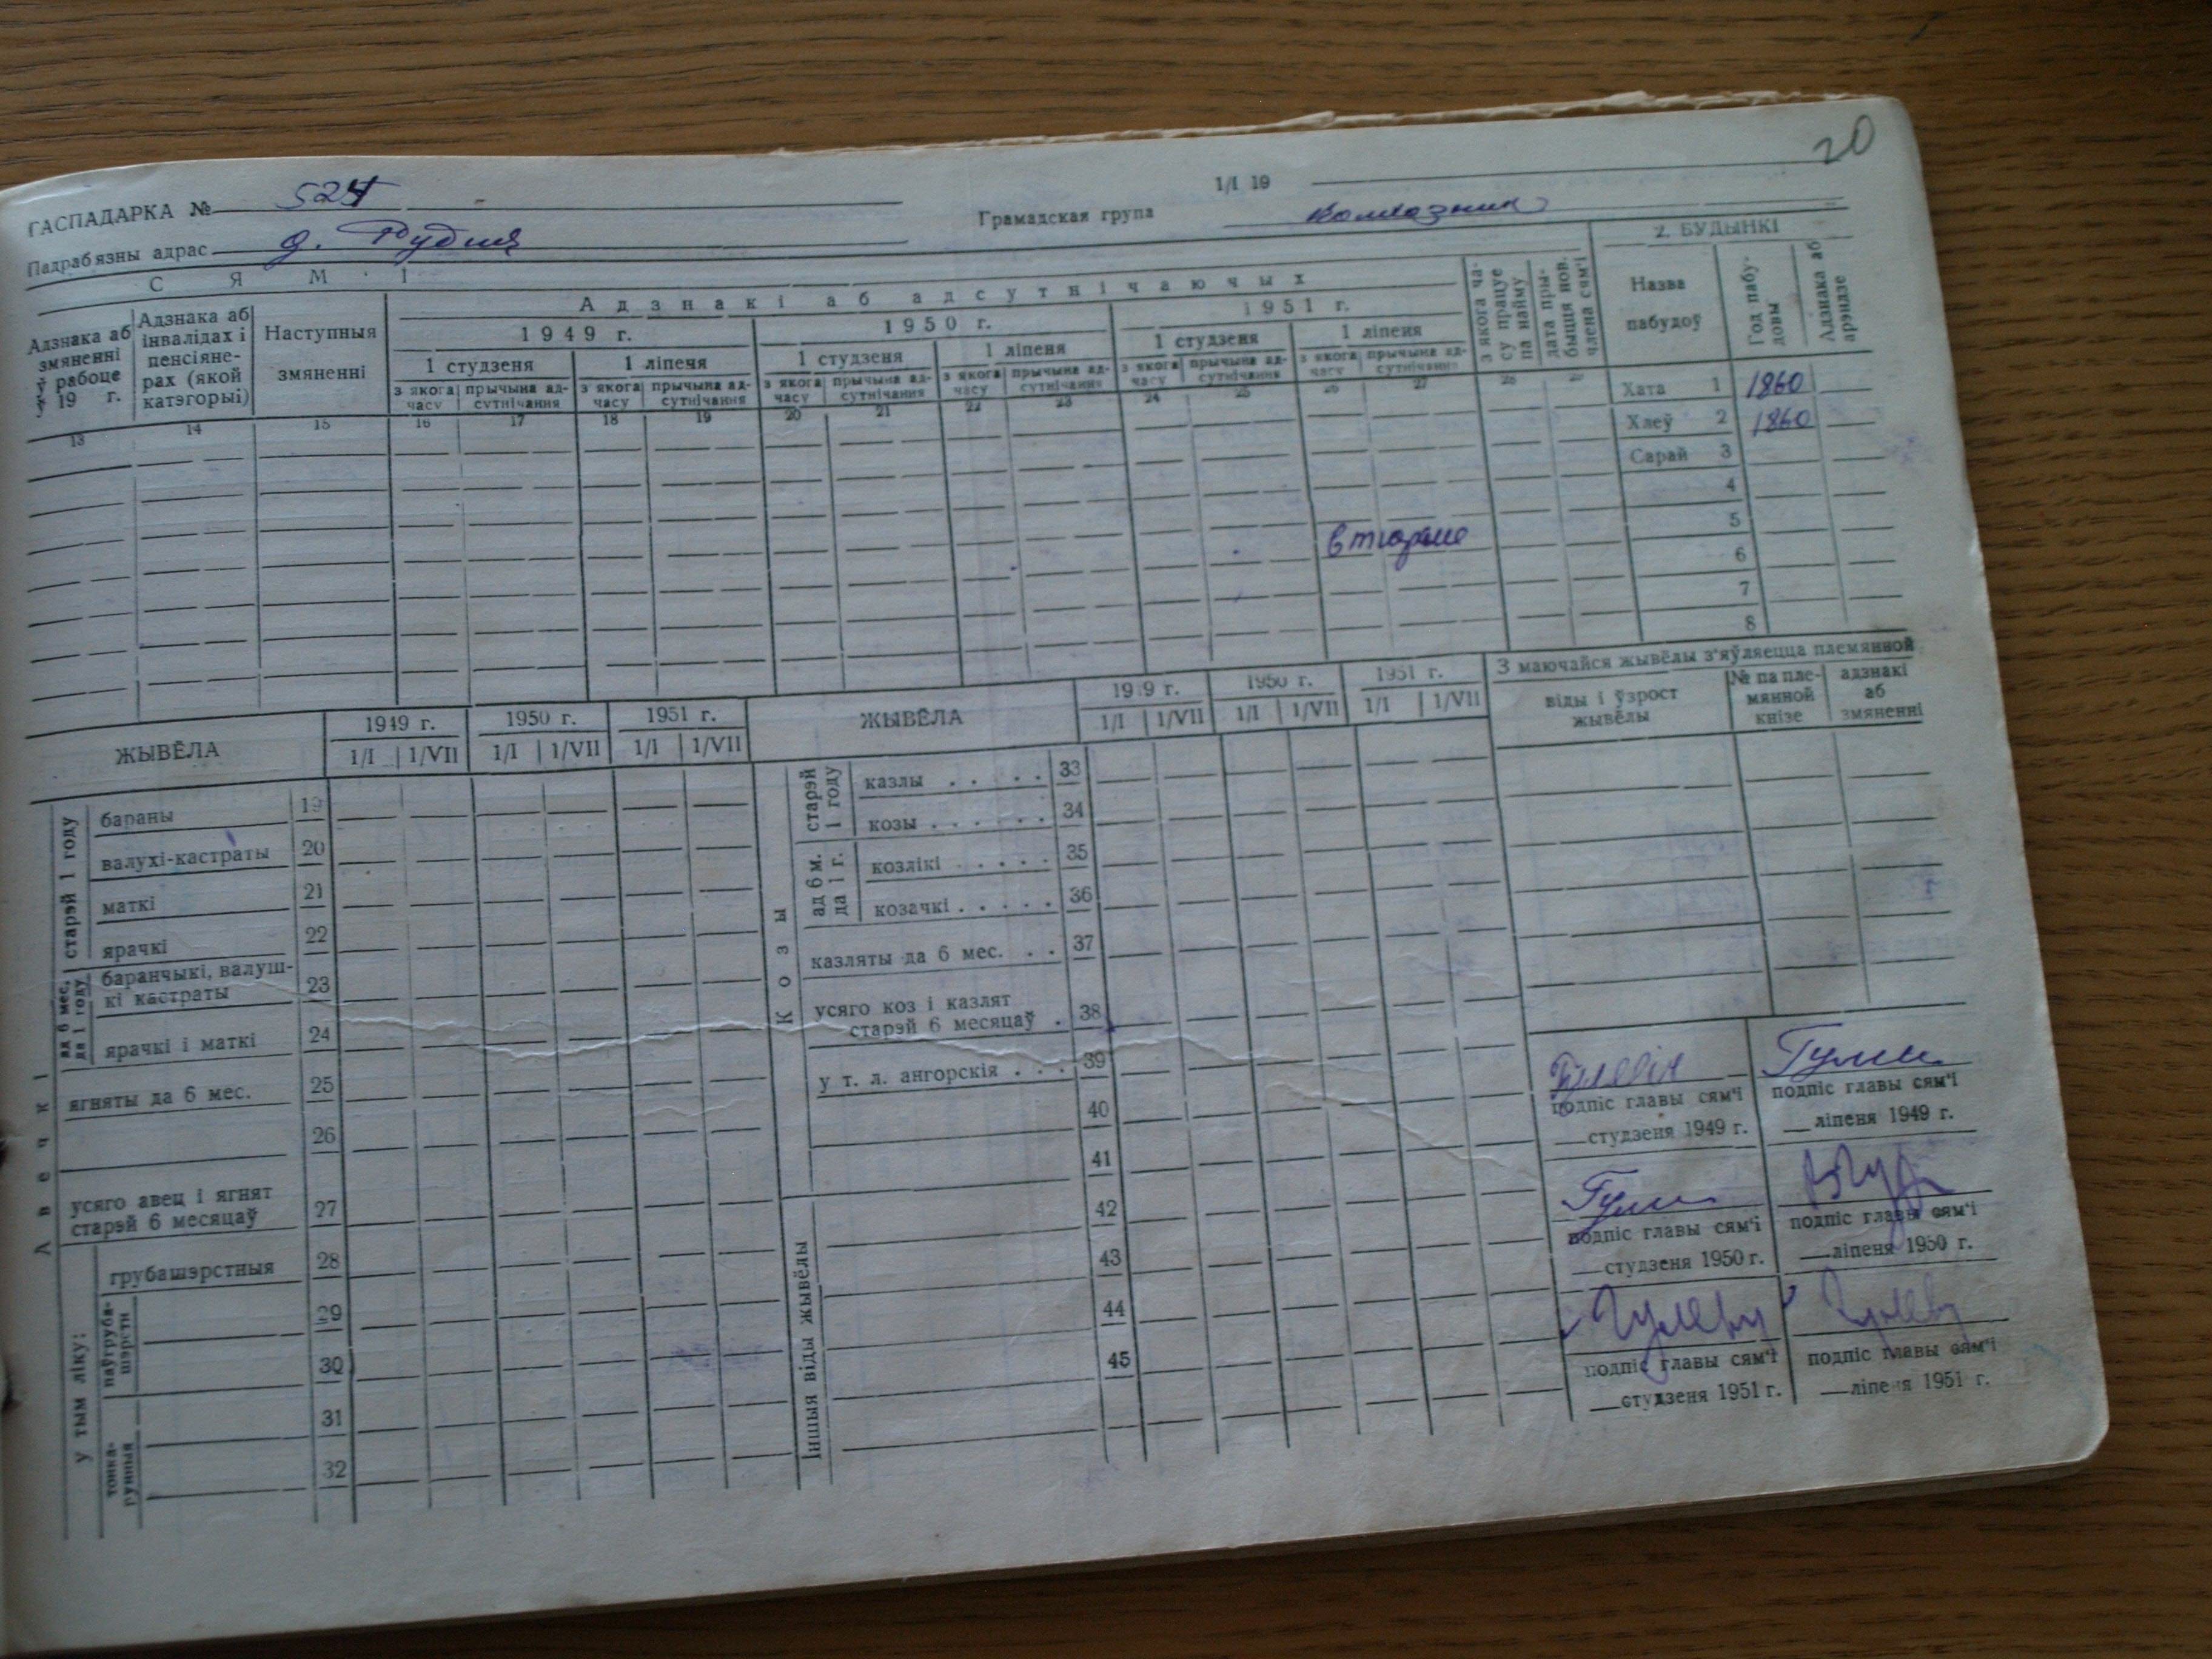 20
1/I 19
ГАСПАДАРКА № 524
Грамадская група колхозник
Падрабязны адрас д. Рудня
С Я М ' І
2. БУДЫНКІ
Адзнака аб змяненні ў рабоце ў 19 г.
Адзнака аб інвалідах і пенсіяне-рах (якой катэгорыі)
Наступныя змяненні
Адзнакі аб адсутнічаючых
1949 г. 1950 г. 1951 г.
1 студзеня 1 ліпеня 1 студзеня 1 ліпеня 1 студзеня 1 ліпеня
з якога часу прычына ад-сутнічання з якога часу прычына ад-сутнічання з якога часу прычына ад-сутнічання з якога часу прычына ад-сутнічання з якога часу прычына ад-сутнічання з якога часу прычына ад-сутнічання
з якога ча-су працуе па найму
дата пры-быцця нов. члена сям'і
Назва пабудоў
Год пабу-довы
Адзнака аб арэндзе
13 14 15 16 17 18 19 20 21 22 23 24 25 26 27 28
Хата 1 1860
Хлеў 2 1860
Сарай 3
4
5
в тюрьме
6
7
8
ЖЫВЁЛА
1949 г. 1950 г. 1951 г.
1/I 1/VII 1/I 1/VII 1/I 1/VII
Авечкі
старэй 1 году
бараны 19
валухі-кастраты 20
маткі 21
ярачкі 22
ад 6 мес. да 1 году
баранчыкі, валуш-
кі кастраты 23
ярачкі і маткі 24
ягняты да 6 мес. 25
26
усяго авец і ягнят
старэй 6 месяцаў 27
у тым ліку:
грубашэрстныя 28
паўгруба-шэрстн
29
30
тонка-рунныя
31
32
ЖЫВЁЛА
1949 г. 1950 г. 1951 г.
1/I 1/VII 1/I 1/VII 1/I 1/VII
Козы
старэй 1 году
казлы . . . . . 33
козы . . . . . . 34
ад 6 м. да 1 г.
козлікі . . . . . 35
козачкі . . . . . 36
казляты да 6 мес. . . 37
усяго коз і казлят
старэй 6 месяцаў . 38
у т. л. ангорскія . . . 39
40
41
Іншыя віды жывёлы
42
43
44
45
З маючайся жывёлы з'яўляецца племянной
віды і ўзрост жывёлы
№ па пле-мянной кнізе
адзнакі аб змяненні
подпіс главы сям'і
студзеня 1949 г.
подпіс главы сям'і
ліпеня 1949 г.
подпіс главы сям'і
студзеня 1950 г.
подпіс главы сям'і
ліпеня 1950 г.
подпіс главы сям'і
студзеня 1951 г.
подпіс главы сям'і
ліпеня 1951 г.